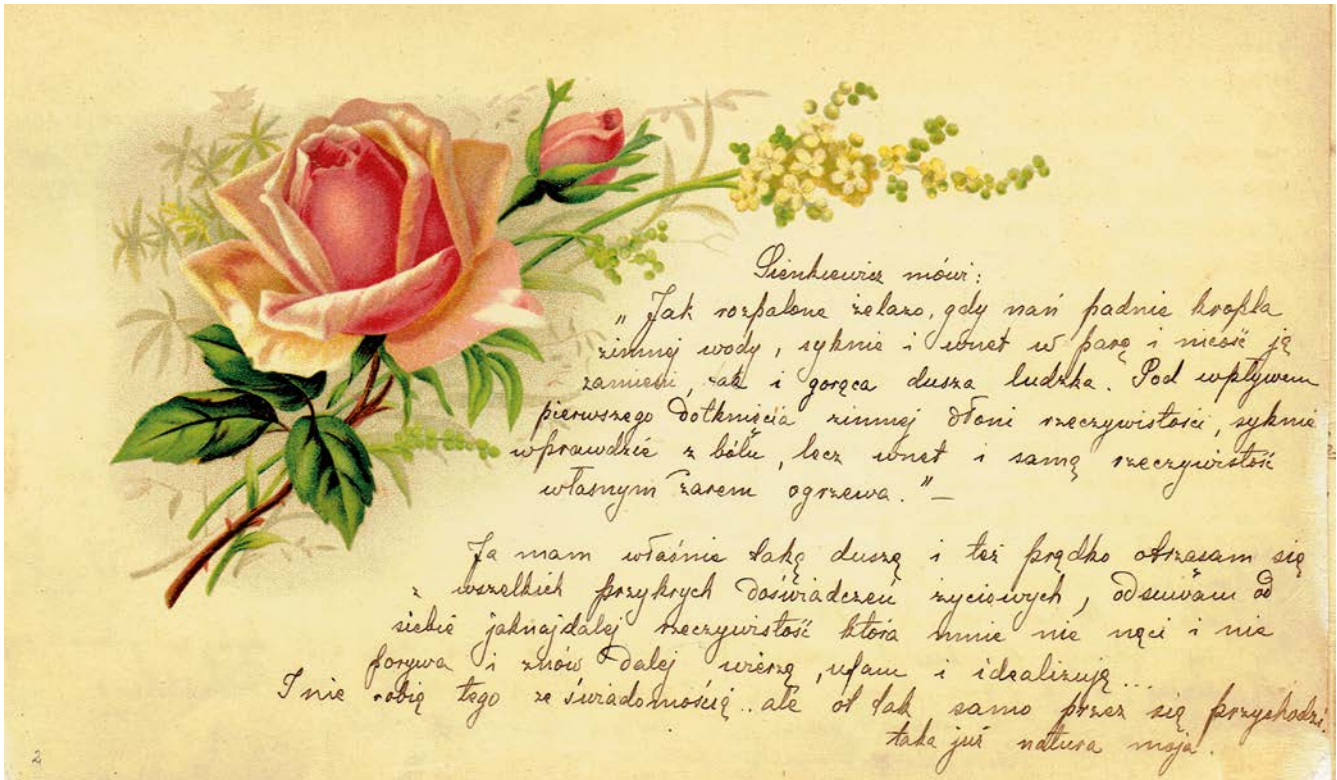 Sienkiewicz mówi:
„Jak rozpalone żelazo, gdy nań padnie kropla
zimnej wody, syknie i wnet w parę i nicość ją
zamieni, tak i gorąca dusza ludzka. Pod wpływem
pierwszego dotknięcia zimnej dłoni rzeczywistości, syknie
wprawdzie z bólu, lecz wnet i samą rzeczywistość
własnym żarem ogrzewa." —
Ja mam właśnie taką duszę i też prędko otrzasam się
z wszelkich przykrych doświadczeń życiowych, odsuwam od
siebie jaknajdalej rzeczywistość która mnie nie nęci i nie
porywa i znów dalej wierzę, ufam i idealizuję...
I nie robię tego ze świadomością.. ale ot tak samo przez się przychodzi
taka już natura moja.
2